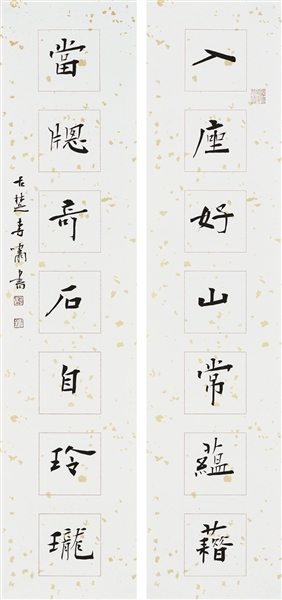 入座好山常蘊藉
當牕奇石自玲瓏
古楚李肅書